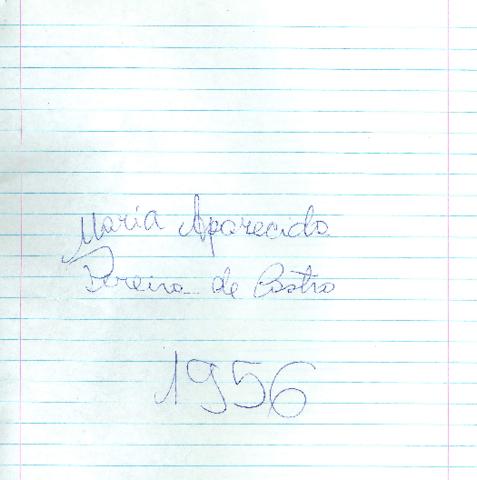 Maria Aparecida
Pereira de Castro
1956